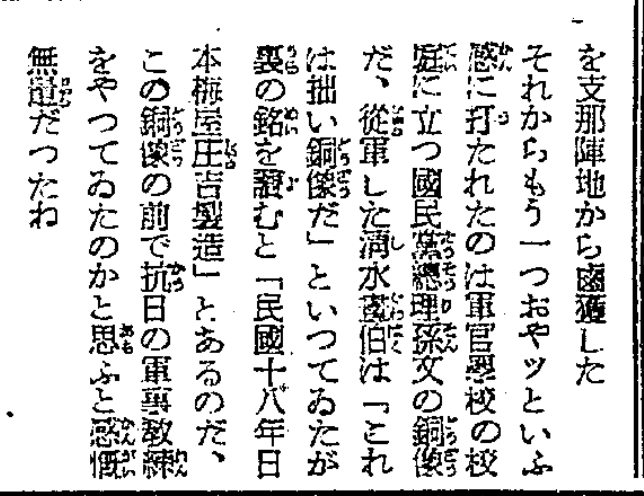 を支那陣地から鹵獲した
それからもう一つおやッといふ
感に打たれたのは軍官學校の校
庭に立つ國民黨總理孫文の銅像
だ、從軍した淸水畫伯は「これ
は拙い銅像だ」といつてゐたが
裏の銘を讀むと「民國十八年日
本梅屋庄吉製造」とあるのだ、
この銅像の前で抗日の軍事敎練
をやつてゐたのかと思ふと感慨
無量だつたね